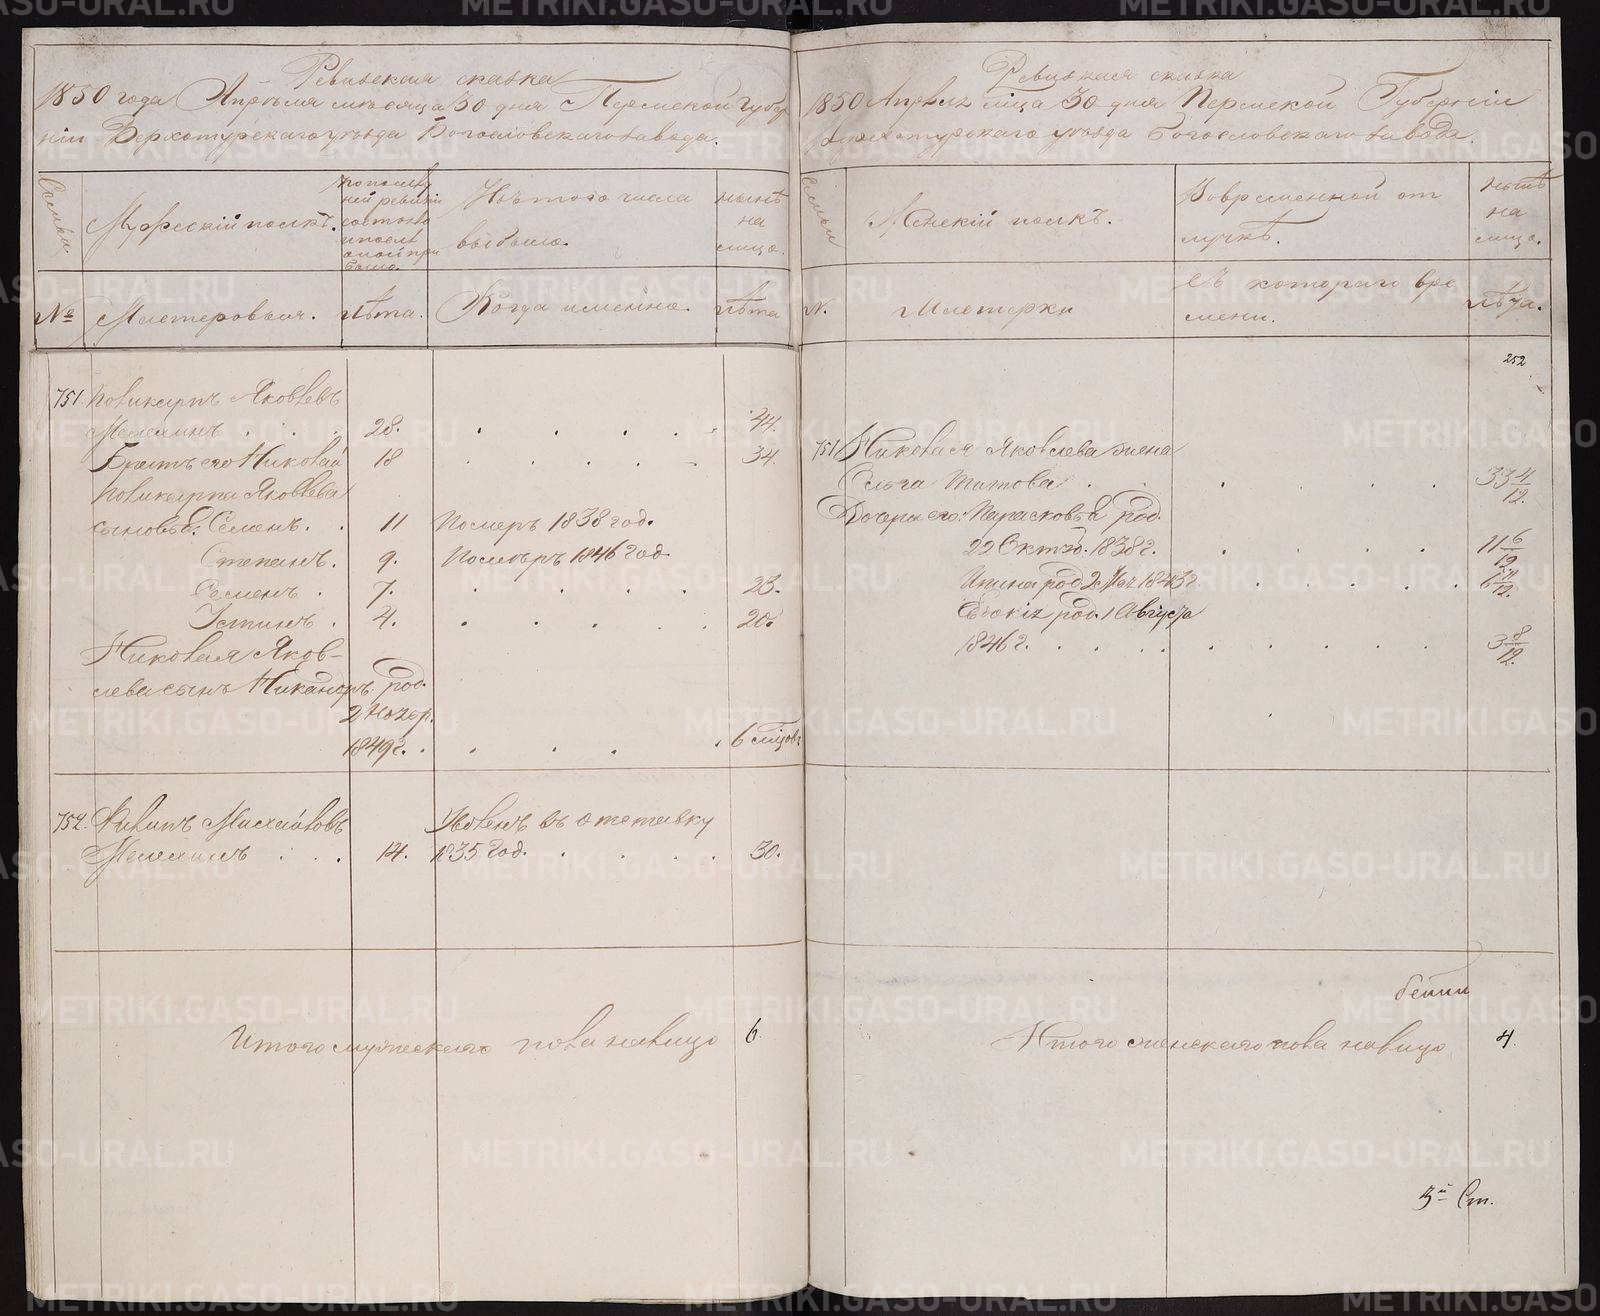 Ревизская сказка
1850 года Апреля месяца 30 дня Пермской Губер
ніи Верхотурскаго уѣзда Богословскаго завода.
Семьи
Мужескій полкъ.
по послѣд
ней ревизіи
состояло
и послѣ
оной при
было.
Изъ того числа
выбыло.
нынѣ
на
лицо.
№
Мастеровыя.
Лѣта.
Когда именно.
Лѣта
751
Поликарпъ Яковлевъ
28. 44.
Братъ его Николай 18 34.
Поликарпа Яковлева
сыновья: Семенъ. 11 Померъ 1838 год.
Степанъ. 9. Помѣръ 1846 год
Семенъ. 7. 23.
Устинъ. 4. 20.
Николая Яков-
лева сынъ Никаноръ род.
2 Ноябр.
1849 г. 6 мѣсцовъ
752. Филипъ Михайловъ Уволенъ въ отставку
14. 1835 год. 30.
Итого мужескаго пола налицо 6.
Ревизская сказка
1850 Апрѣля мѣца 30 дня Пермской Губерніи
Верхотурскаго уѣзда Богословскаго завода.
Семьи
Женскій полкъ.
Во временной от
лучкѣ.
нынѣ
на
лицо.
N.
Мастерки
Съ котораго вре
мени.
Лѣта.
252
751 Николая Яковлева жена
Ольга Титова 33 4/12.
Дочери его: Парасковья род.
22 Октяб. 1838 г. 11 6/12
род 2 1843 г.
род. 1 Август
1846 г. 3 8/12.
Итого женскаго пола налицо 4.
3й Ст.
METRIKI.GASO-URAL.RU